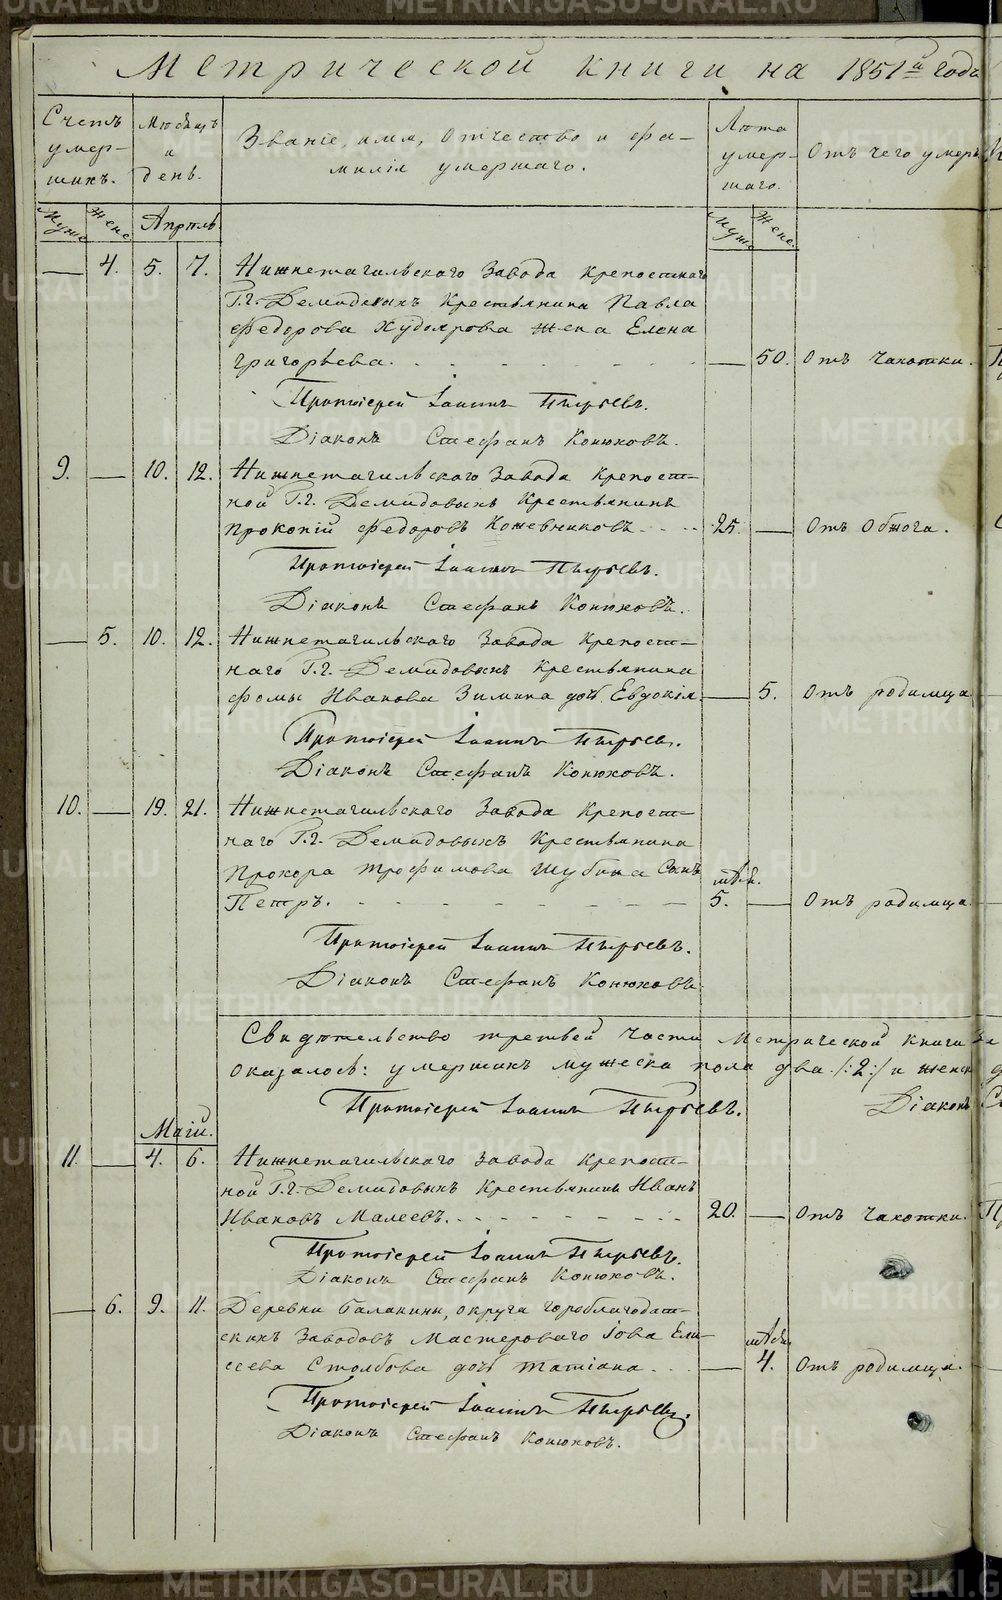 Метрической книги на 1851й годъ
Счетъ умер-шихъ.
Мѣсяцъ и день.
Званіе, имя, отчество и фа-
милія умершаго.
Лѣта умер-шаго.
Отъ чего умеръ
Муже Жене Апрѣль Муже Жене.
— 4. 5. 7. Нижнетагильскаго Завода крепостнаго
Г.г. Демидовыхъ Крестьянина Павла
Федорова Худоярова жена Елена
Григорьева. — 50. Отъ чахотки.
Протоіерей Іоаннъ Пырьевъ.
Діаконъ Стефанъ Конюховъ.
9. — 10. 12. Нижнетагильскаго Завода крепост-
ной Г.г. Демидовыхъ Крестьянинъ
Прокопій Федоровъ Кожевниковъ 25. — Отъ Обжога.
Протоіерей Іоаннъ Пырьевъ.
Діаконъ Стефанъ Конюховъ.
— 5. 10. 12. Нижнетагильскаго Завода крепост-
наго Г.г. Демидовыхъ Крестьянина
Фомы Иванова Зимина дочь Евдокія — 5. Отъ родимца
Протоіерей Іоаннъ Пырьевъ.
Діаконъ Стефанъ Конюховъ.
10. — 19. 21. Нижнетагильскаго Завода Крепост-
наго Г.г. Демидовыхъ Крестьянина
Прохора Трофимова Шубина Сынъ мѣс.
Петръ. 5. — Отъ родимца
Протоіерей Іоаннъ Пырьевъ.
Діаконъ Стефанъ Конюховъ
Свидѣтельство третьей части Метрической книги За
оказалось: умершихъ мужеска пола два /:2:/ и женск
Протоіерей Іоаннъ Пырьевъ. Діаконъ
Маій.
11. — 4. 6. Нижнетагильскаго Завода крепост-
ной Г.г. Демидовыхъ Крестьянинъ Иванъ
Ивановъ Малеевъ. 20. — Отъ чахотки.
Протоіерей Іоаннъ Пырьевъ.
Діаконъ Стефанъ Конюховъ.
— 6. 9. 11. Деревни Балакины, округа Гороблагодат-
скихъ Заводовъ Мастероваго Іова Ели- мѣся
сеева Столбова дочь Татіана. — 4. Отъ родимца.
Протоіерей Іоаннъ Пырьевъ.
Діаконъ Стефанъ Конюховъ.
METRIKI.GASO-URAL.RU